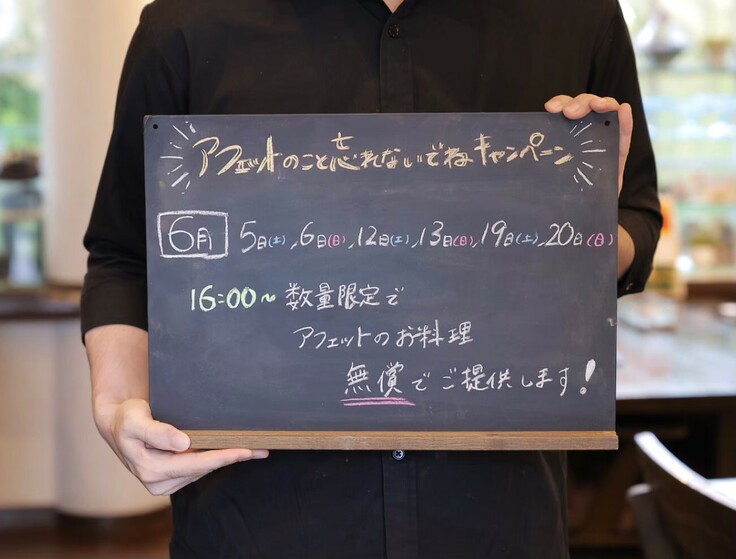 アフェットのこと忘れないでねキャンペーン
6月 5日(土),6日(日),12日(土),13日(日),19日(土),20日(日)
16:00~ 数量限定で
アフェットのお料理
無償でご提供します!